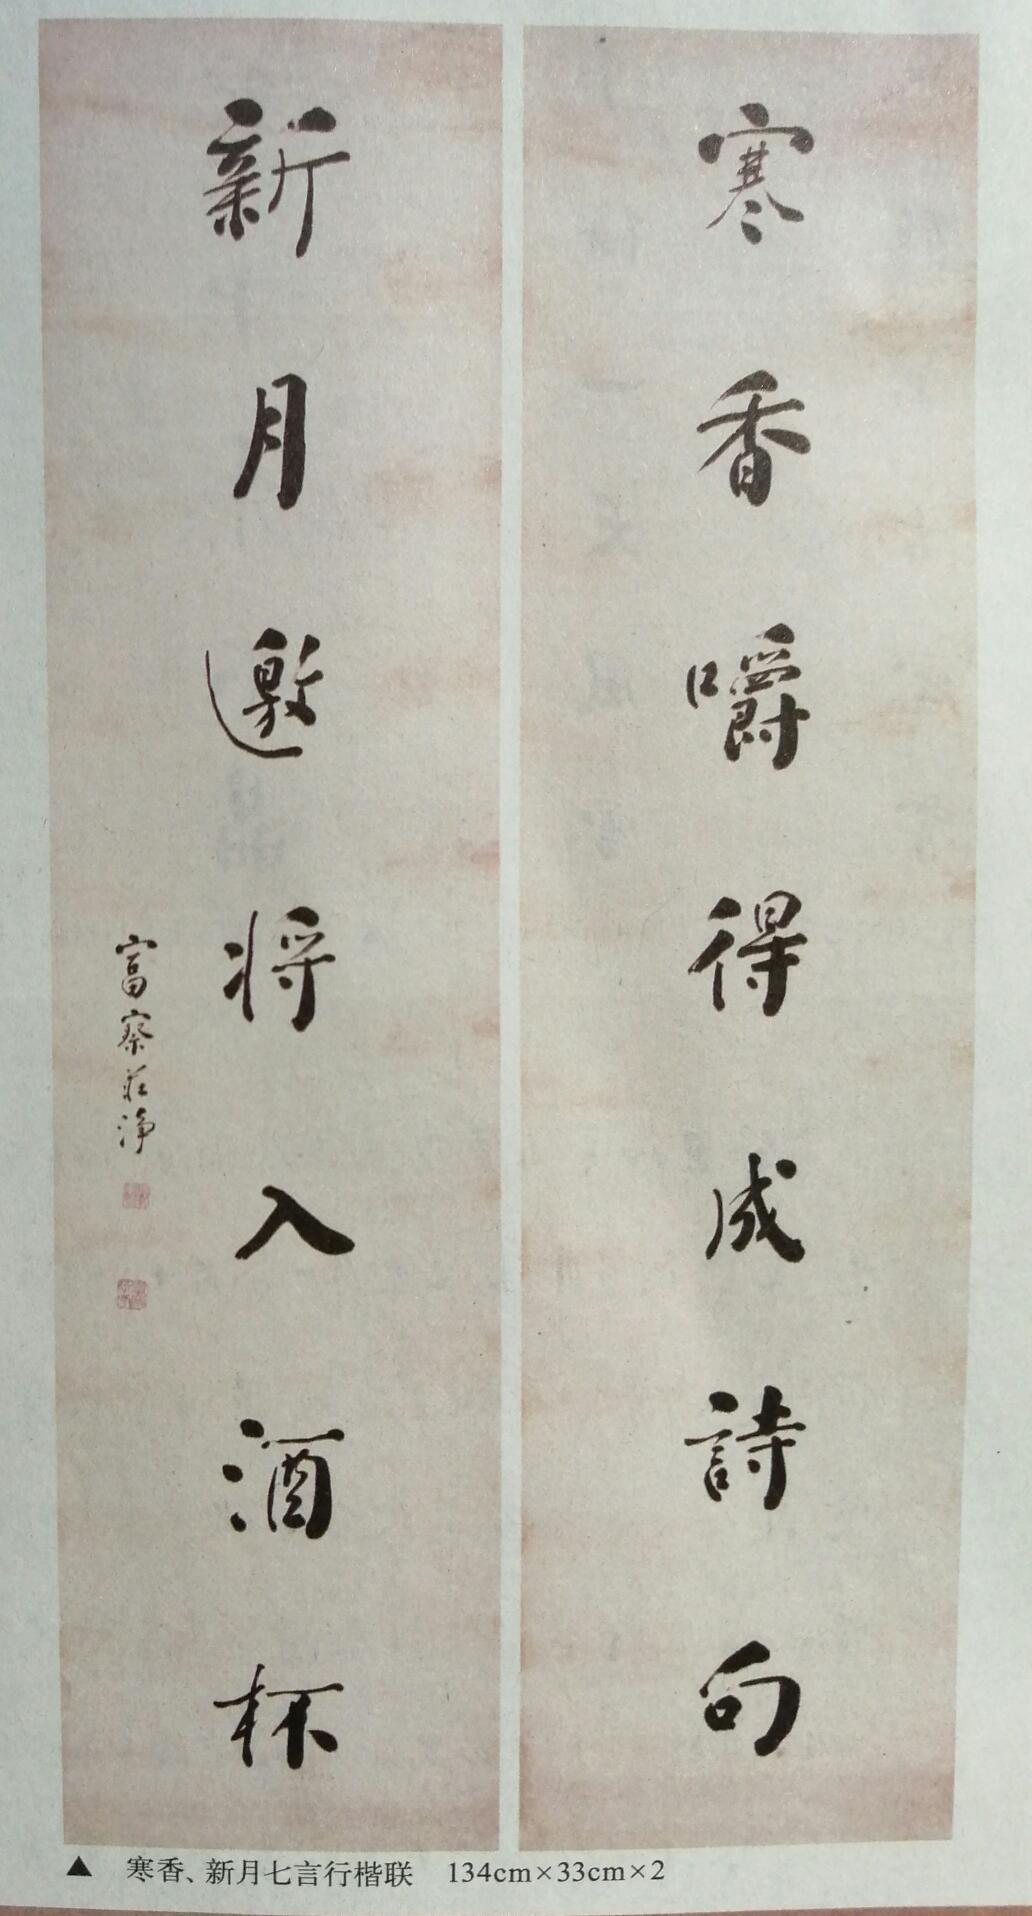 寒香嚼得成詩句
新月邀将入酒杯
富察莊净
▲ 寒香、新月七言行楷联 134cm×33cm×2